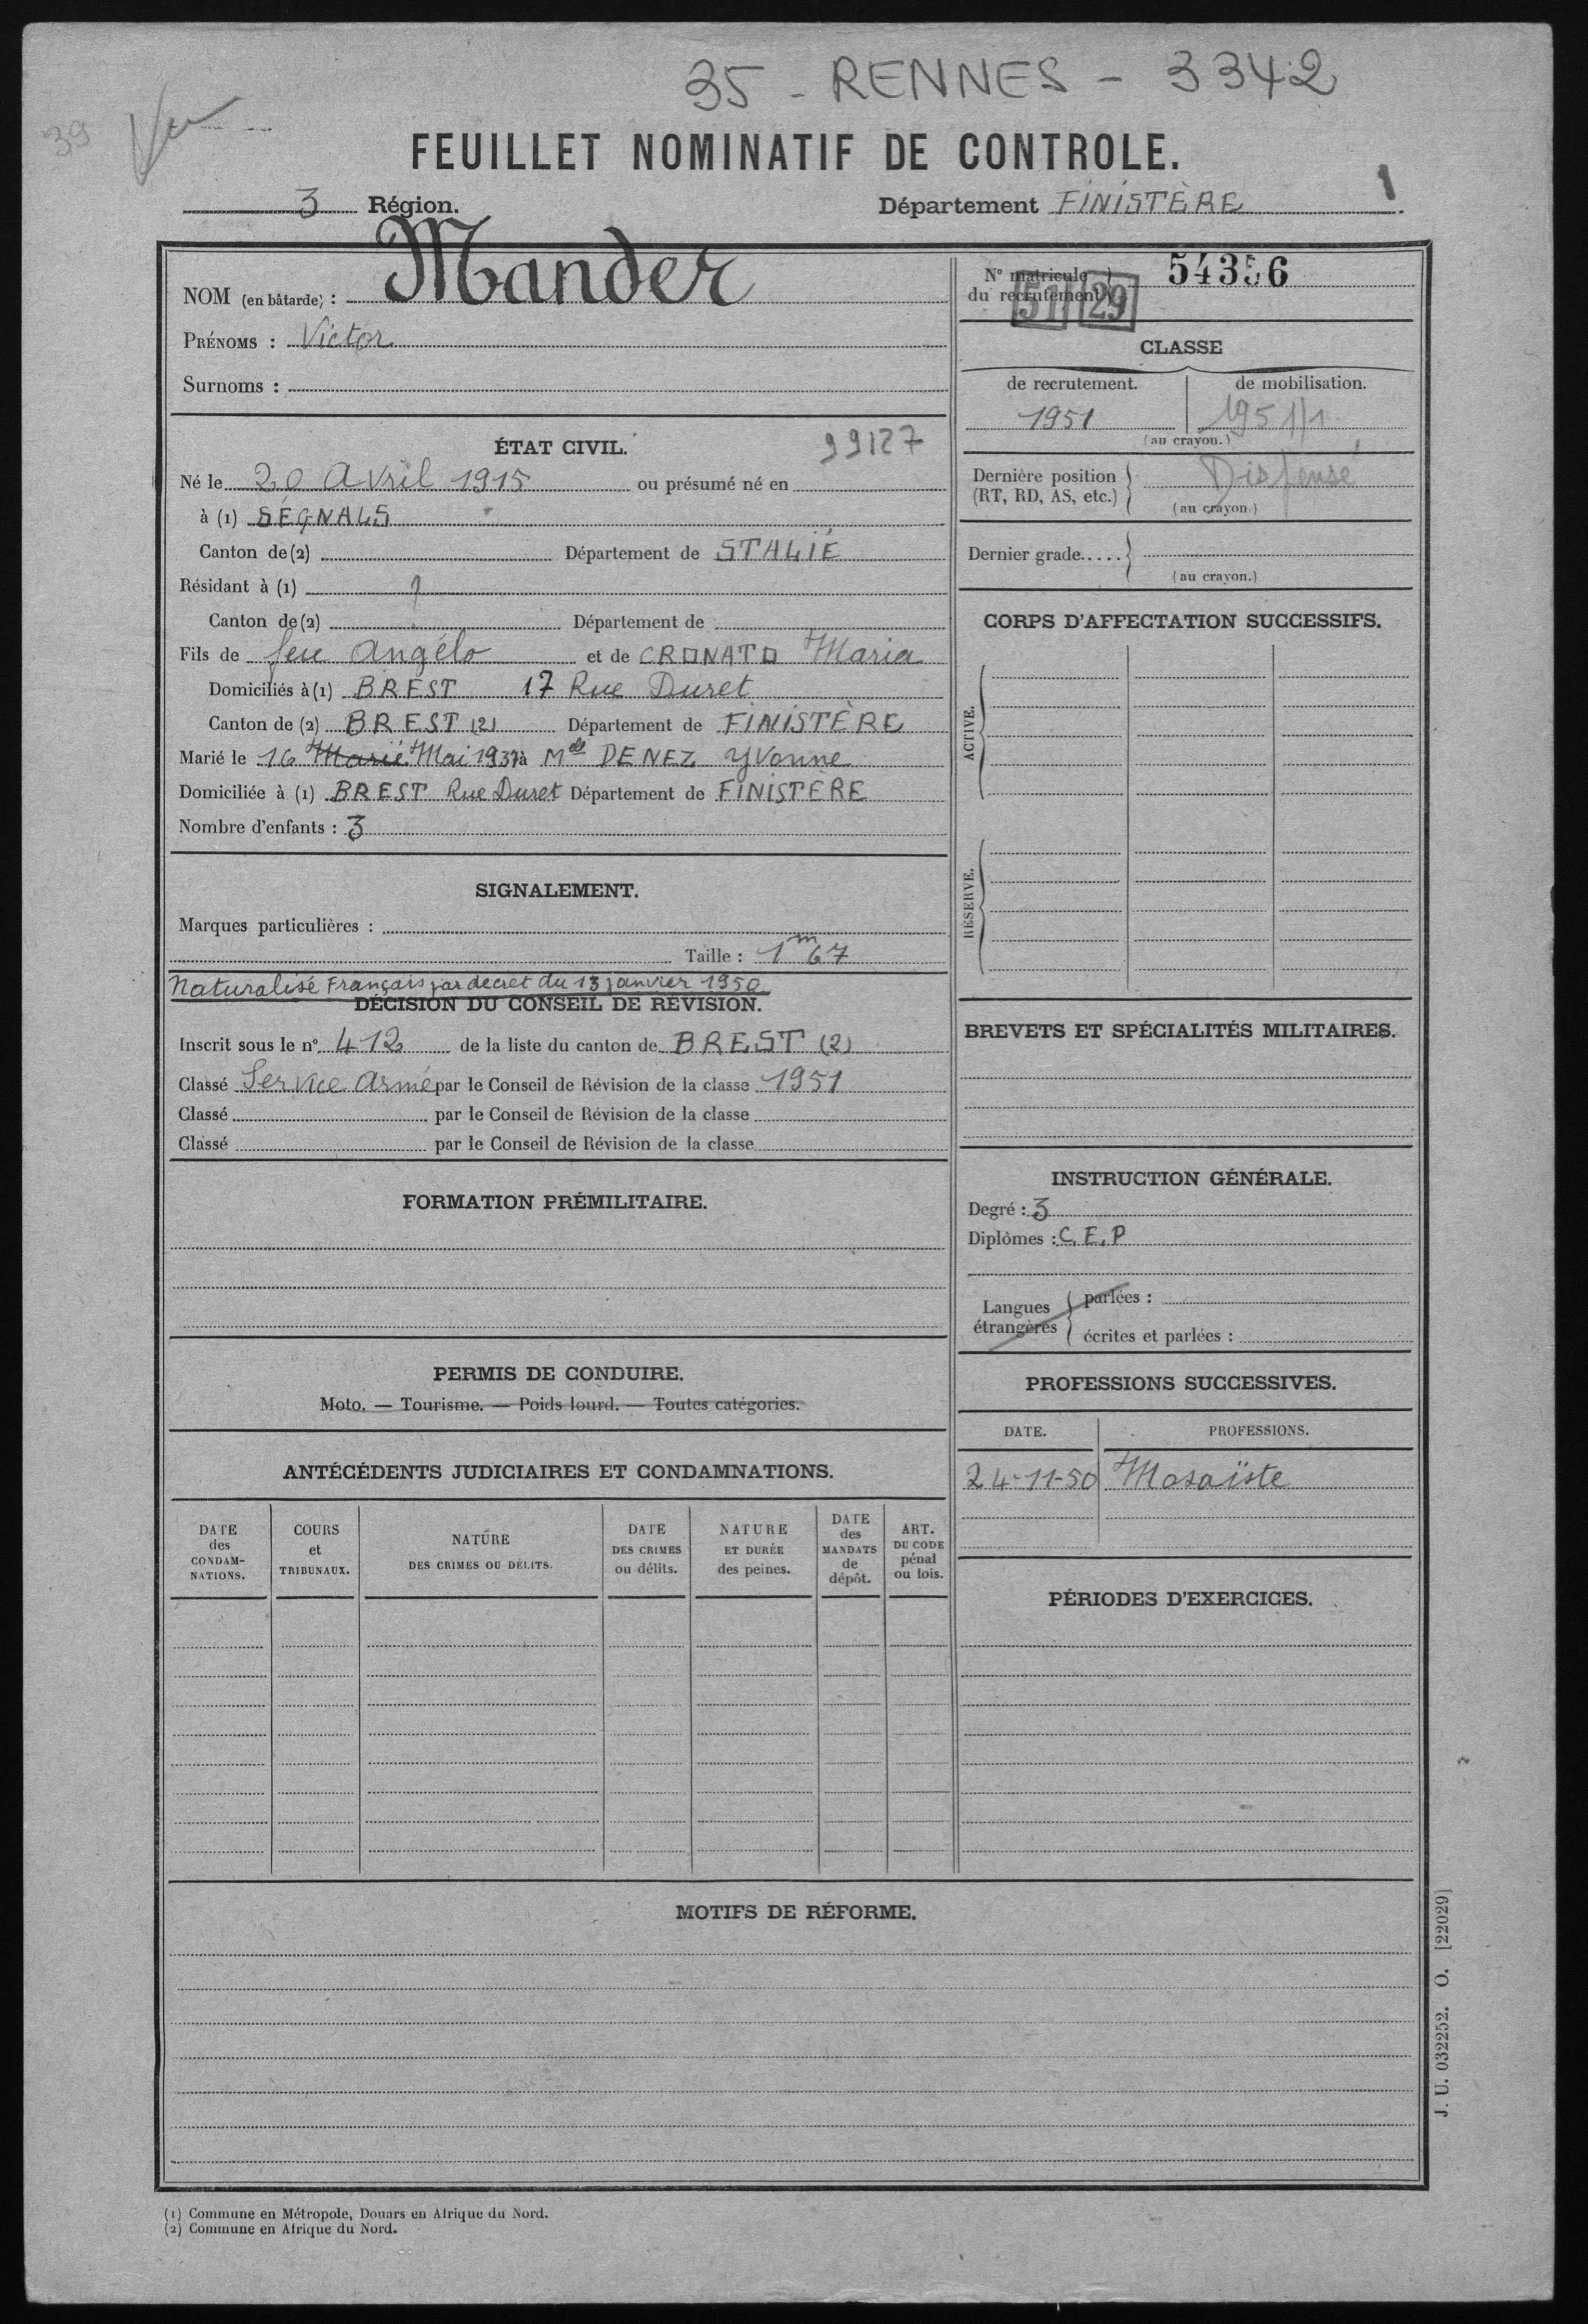 35 - RENNES - 3342
39 Vu
FEUILLET NOMINATIF DE CONTROLE.
3 Région. Département FINISTÈRE 1
NOM (en bâtarde) : Mander
PRÉNOMS : Victor
Surnoms :
ÉTAT CIVIL. 99127
Né le 20 Avril 1915 ou présumé né en
à (1) SÉGNALS
Canton de (2) Département de STALIE
Résidant à (1)
Canton de (2) Département de
Fils de feu Angélo et de CRONATO Maria
Domiciliés à (1) BREST 17 Rue Duret
Canton de (2) BREST (2) Département de FINISTÈRE
Marié le 16 Marié Mai 1937 à Mde DENEZ Yvonne
Domiciliée à (1) BREST Rue Duret Département de FINISTÈRE
Nombre d'enfants : 3
SIGNALEMENT.
Marques particulières :
Taille : 1m67
Naturalisé Français par decret du 13 janvier 1950
DÉCISION DU CONSEIL DE RÉVISION.
Inscrit sous le n° 412 de la liste du canton de BREST (2)
Classé Service Armé par le Conseil de Révision de la classe 1951
Classé par le Conseil de Révision de la classe
Classé par le Conseil de Révision de la classe
FORMATION PRÉMILITAIRE.
PERMIS DE CONDUIRE.
Moto. — Tourisme. — Poids lourd. — Toutes catégories.
ANTÉCÉDENTS JUDICIAIRES ET CONDAMNATIONS.
DATE des CONDAM-NATIONS.
COURS et TRIBUNAUX.
NATURE DES CRIMES OU DÉLITS.
DATE DES CRIMES ou délits.
NATURE ET DURÉE des peines.
DATE des MANDATS de dépôt.
ART. DU CODE pénal ou lois.
N° matricule du recrutement 54356
51 29
CLASSE
de recrutement. de mobilisation.
1951 1951/1
(au crayon.)
Dernière position (RT, RD, AS, etc.) Dispensé
(au crayon)
Dernier grade.....
(au crayon.)
CORPS D'AFFECTATION SUCCESSIFS.
ACTIVE.
RÉSERVE.
BREVETS ET SPÉCIALITÉS MILITAIRES.
INSTRUCTION GÉNÉRALE.
Degré : 3
Diplômes : C.E.P
Langues étrangères
parlées :
écrites et parlées :
PROFESSIONS SUCCESSIVES.
DATE. PROFESSIONS.
24-11-50 Mosaïste
PÉRIODES D'EXERCICES.
MOTIFS DE RÉFORME.
J. U. 032252. O. [22029]
(1) Commune en Métropole, Douars en Afrique du Nord.
(2) Commune en Afrique du Nord.